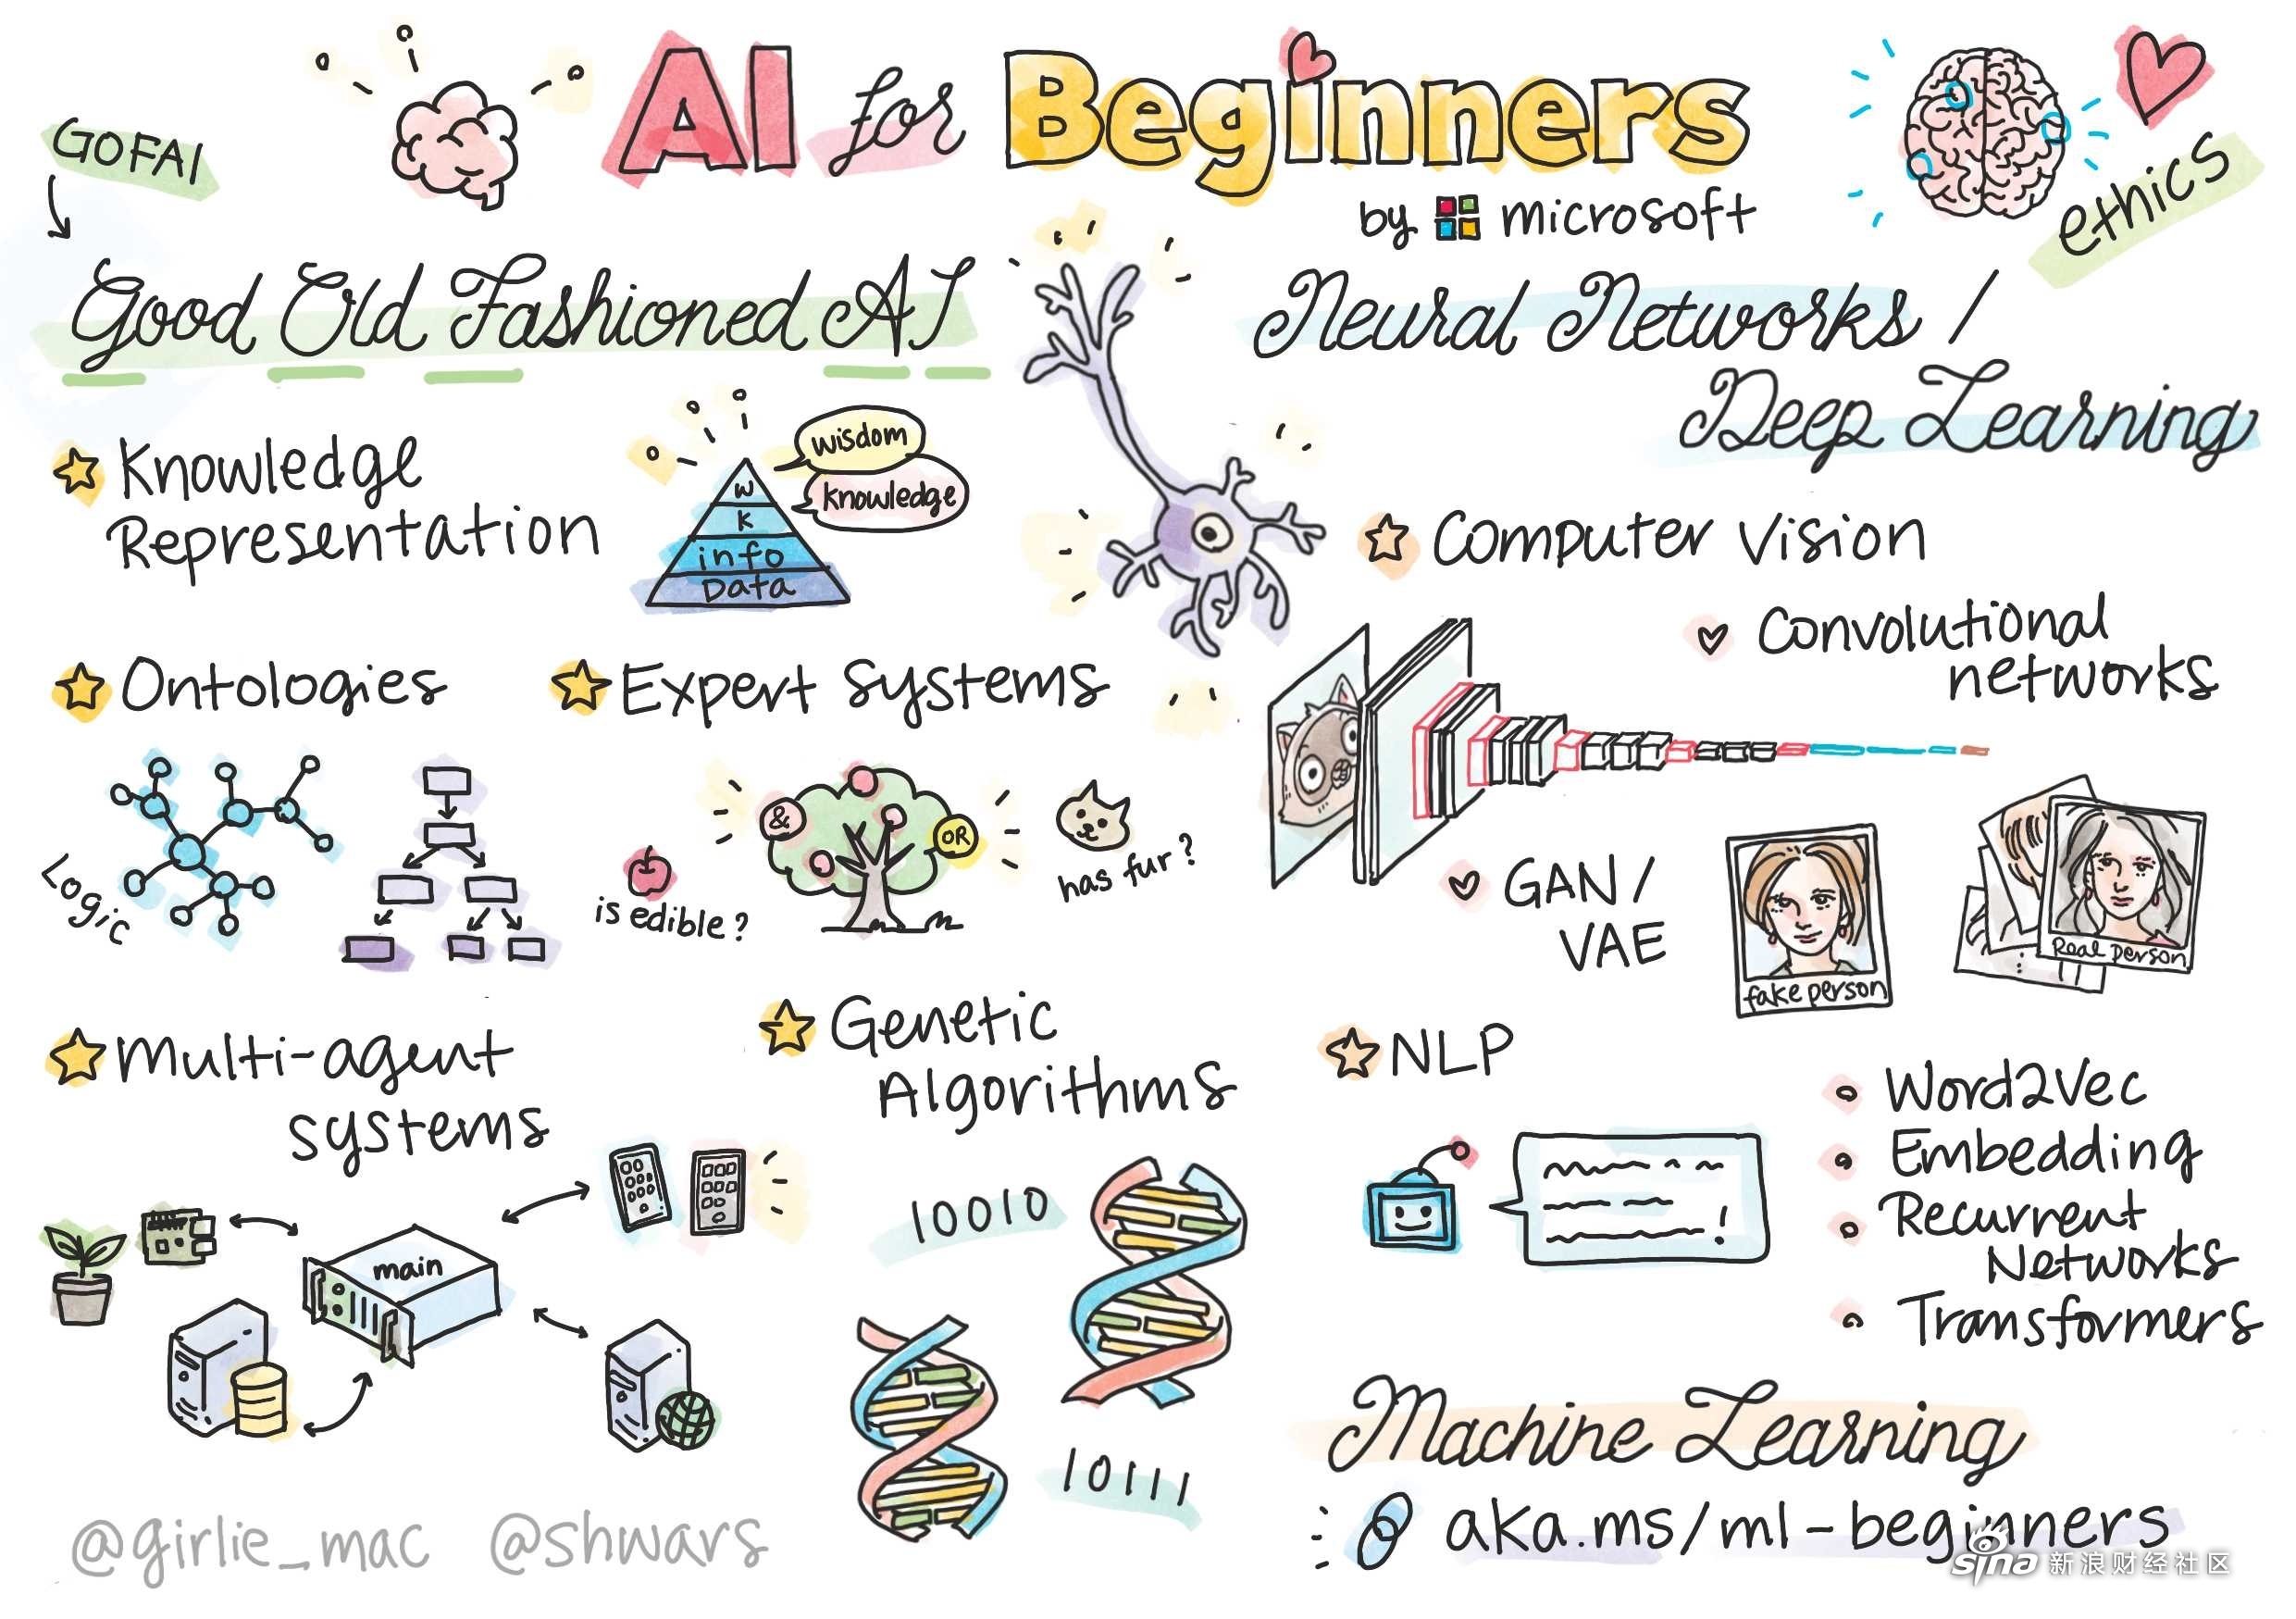 AI for Beginners
by microsoft
GOFAI
ethics
Good Old Fashioned AI
Knowledge
Representation
wisdom
knowledge
W
K
info
Data
Ontologies
Logic
Expert systems
&
OR
is edible?
has fur?
Multi-agent
systems
main
Genetic
Algorithms
10010
10111
@girlie_mac @shwars
Neural Networks /
Deep Learning
Computer Vision
Convolutional
networks
GAN /
VAE
fake person
Real person
NLP
!
Word2Vec
Embedding
Recurrent
Networks
Transformers
Machine Learning
aka.ms/ml-beginners
sina 新浪财经社区